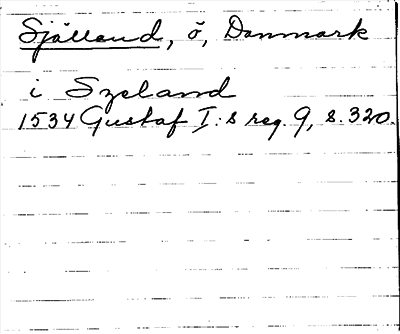 Själland, ö, Danmark
i Szeland
1534 Gustaf I:s reg. 9, s. 320.